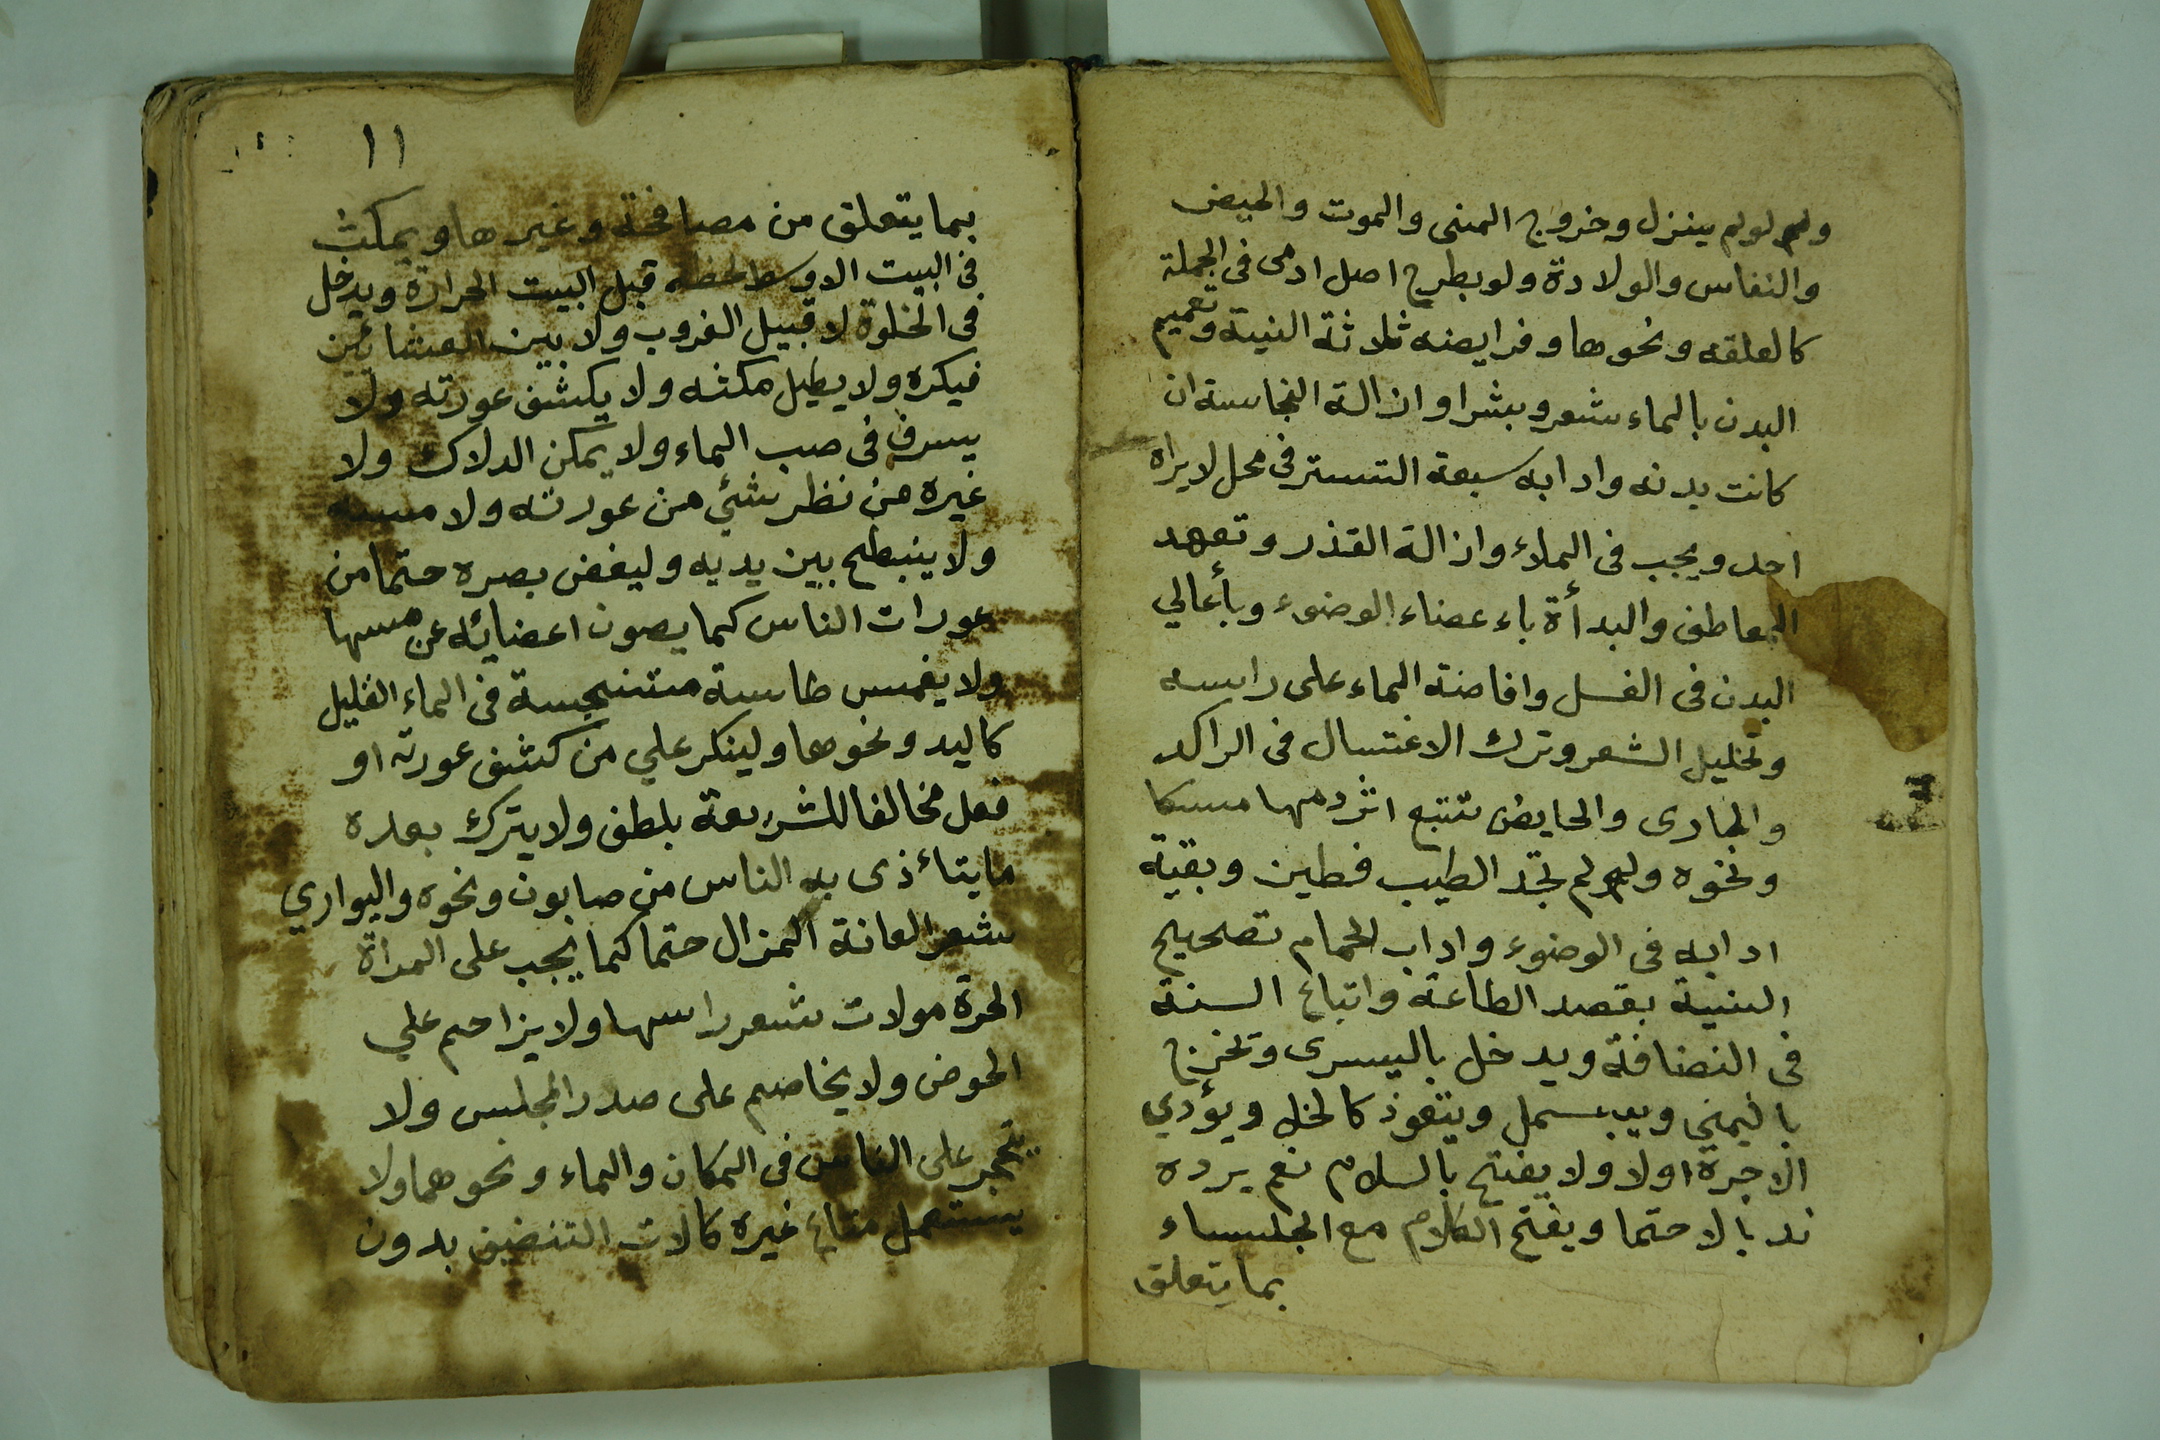 ولو لم ينزل وخروج المنى والموت والحيض
والنفاس والولادة ولو بطرح اصل ادمى فى الجملة
كالعلقه ونحوها وفرايضه ثلاثة النية وتعميم
البدن بالماء شعر وبشرا وازالة النجاسة ان
كانت بدنه وادابه سبعة التستر فى محل لا يراه
احد ويجب فى الملاء وازالة القذر وتعهد
المعاطف والبدأة باء عضاء الوضوء وبأعالي
البدن فى الغسل وافاضة الماء على راسه
وتخليل الشعر وترك الاغتسال فى الراكد
والجارى والحايض تتبع اثر دمها مسكا
ونخوه ولم تجد الطيب فطين وبقية
ادابه فى الوضوء واداب الحمام تصحيح
النية بقصد الطاعة واتباع السنة
فى النضافة ويدخل باليسرى وتخرج
باليمني ويبسمل ويتعوذ كالخل ويؤدي
الاجرة اولا ولا يفتح بالسلام نعم يرده
ندبا لا حتما ويفتح الكلام مع الجلساء
بما يتعلق
١١
بما يتعلق من مصافحة وغيرها ويمكث
فى البيت الاوسط لحظه قبل البيت الحرارة ويدخل
فى الخلوة لا قبيل الغروب ولا بين العشائين
فيكره ولا يطيل مكثه ولا يكشف عورته ولا
يسرف فى صب الماء ولا يمكن الدلاك ولا
غيره من نظر شئي من عورته ولا مسه
ولا ينبطح بين يديه وليغض بصره حتما من
عورات الناس كما يصون اعضائه عن مسها
ولا يغمس طاسة متنجسة فى الماء القليل
كاليد ونحوها ولينكر علي من كشف عورته او
فعل مخالفا للشريعة بلطف ولا يترك بعده
ما يتاءذى به الناس من صابون ونخوه واليواري
شعر العانة المزال حتما كما يجب على المراة
الحرة مولات شعر راسها ولا يزاحم علي
الحوض ولا يخاصم على صدر المجلس ولا
يتحجر على الناس فى المكان والماء ونحوهما ولا
يستعمل متاع غيره كالات التنضيف بدون